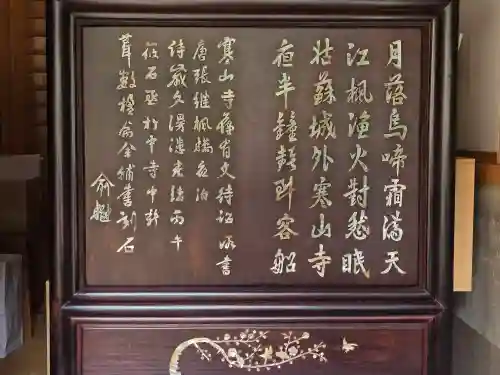 月落烏啼霜滿天
江楓漁火對愁眠
姑蘇城外寒山寺
夜半鐘聲到客船
寒山寺舊有文待詔所書
唐張繼楓橋夜泊
詩歲久漫漶光緒丙午
筱石丞於中寺中新
葺數楹屬余補書刻石
俞樾